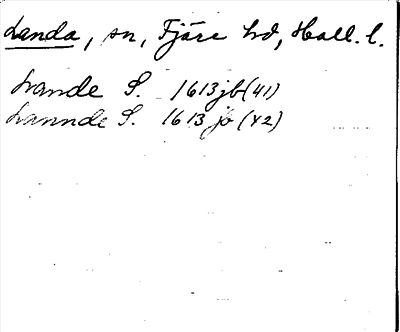 Landa, sn, Fjäre hd, Hall. l.
Lande S. 1613 jb (41)
Lannde S. 1613 jb (42)